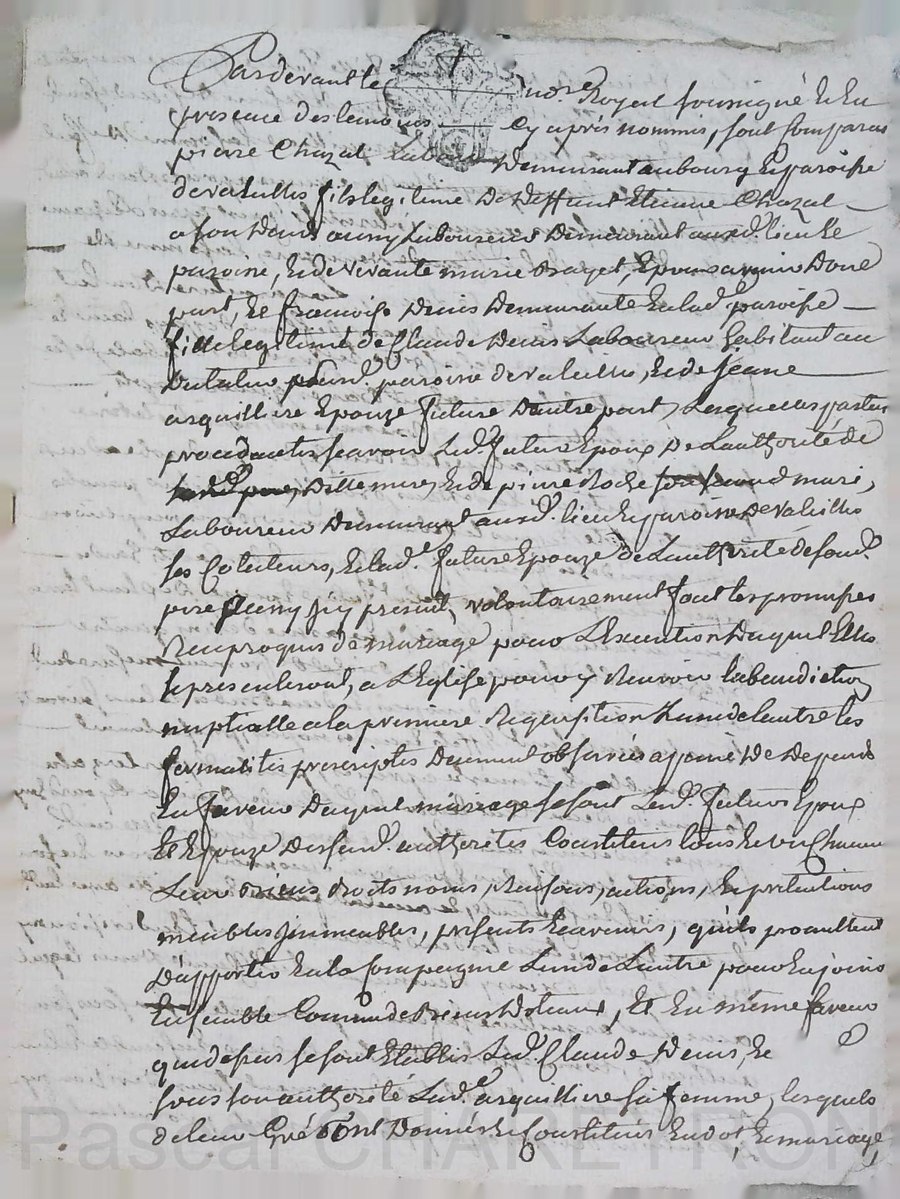 Pardevant le no.re Royal soussigné et En
presence des temoins Cy après nommés, sont Comparus
pierre Chazal Laboureur Demeurant au bourg et paroisse
de valeilles fils legitime De Deffunt Etienne Chazal
a son Vivant aussy Laboureur Demeurant aud. lieu et
paroisse, et de vivante marie Bayet, Epoux avenir D'une
part, et françoise Denis Demeurante En lad. paroisse
fille legitime de Claude Denis Laboureur habitant au
paroisse de valeilles, et de Jeane
arquilliere Epouze future D'autre part, Lesquelles parties
procedantes scavoir Led. futur Epoux De L'authorité de
Ditte mere, et de pierre Roche mari,
Laboureur Demeurant aud. lieu et paroisse De valeilles
ses Cotuteurs, et lad.e future Epouze De L'authorité de sond.
pere aussy icy present, volontairement font les promesses
Reciproques de mariage pour L'execution Duquel Elles
se presenteront, a L'Eglise pour y Recevoir la benediction
nuptialle a la premiere Requisition L'un de L'autre les
formalites prescriptes Duement observées a peine De Depends
En faveur Duquel mariage se sont Led. futurs Epoux
Et Epouze Desd. authorites Constitues tous Et un Chacun
Leurs Biens droits noms, Raisons, actions, Et pretentions
meubles immeubles, presents Et avenir, qu'ils promettent
D'apporter En la Compagnie L'un de L'autre pour En joüir
Ensemble Comme de Biens Dotaux, Et En même faveur
que dessus se sont Etablis Led. Claude Denis, Et
sous son authorité Lad.e arquilliere sa femme, lesquels
de leur Gré Ont Donnés Et Constitués En dot, Et mariage,
Pascal CHAREYRON